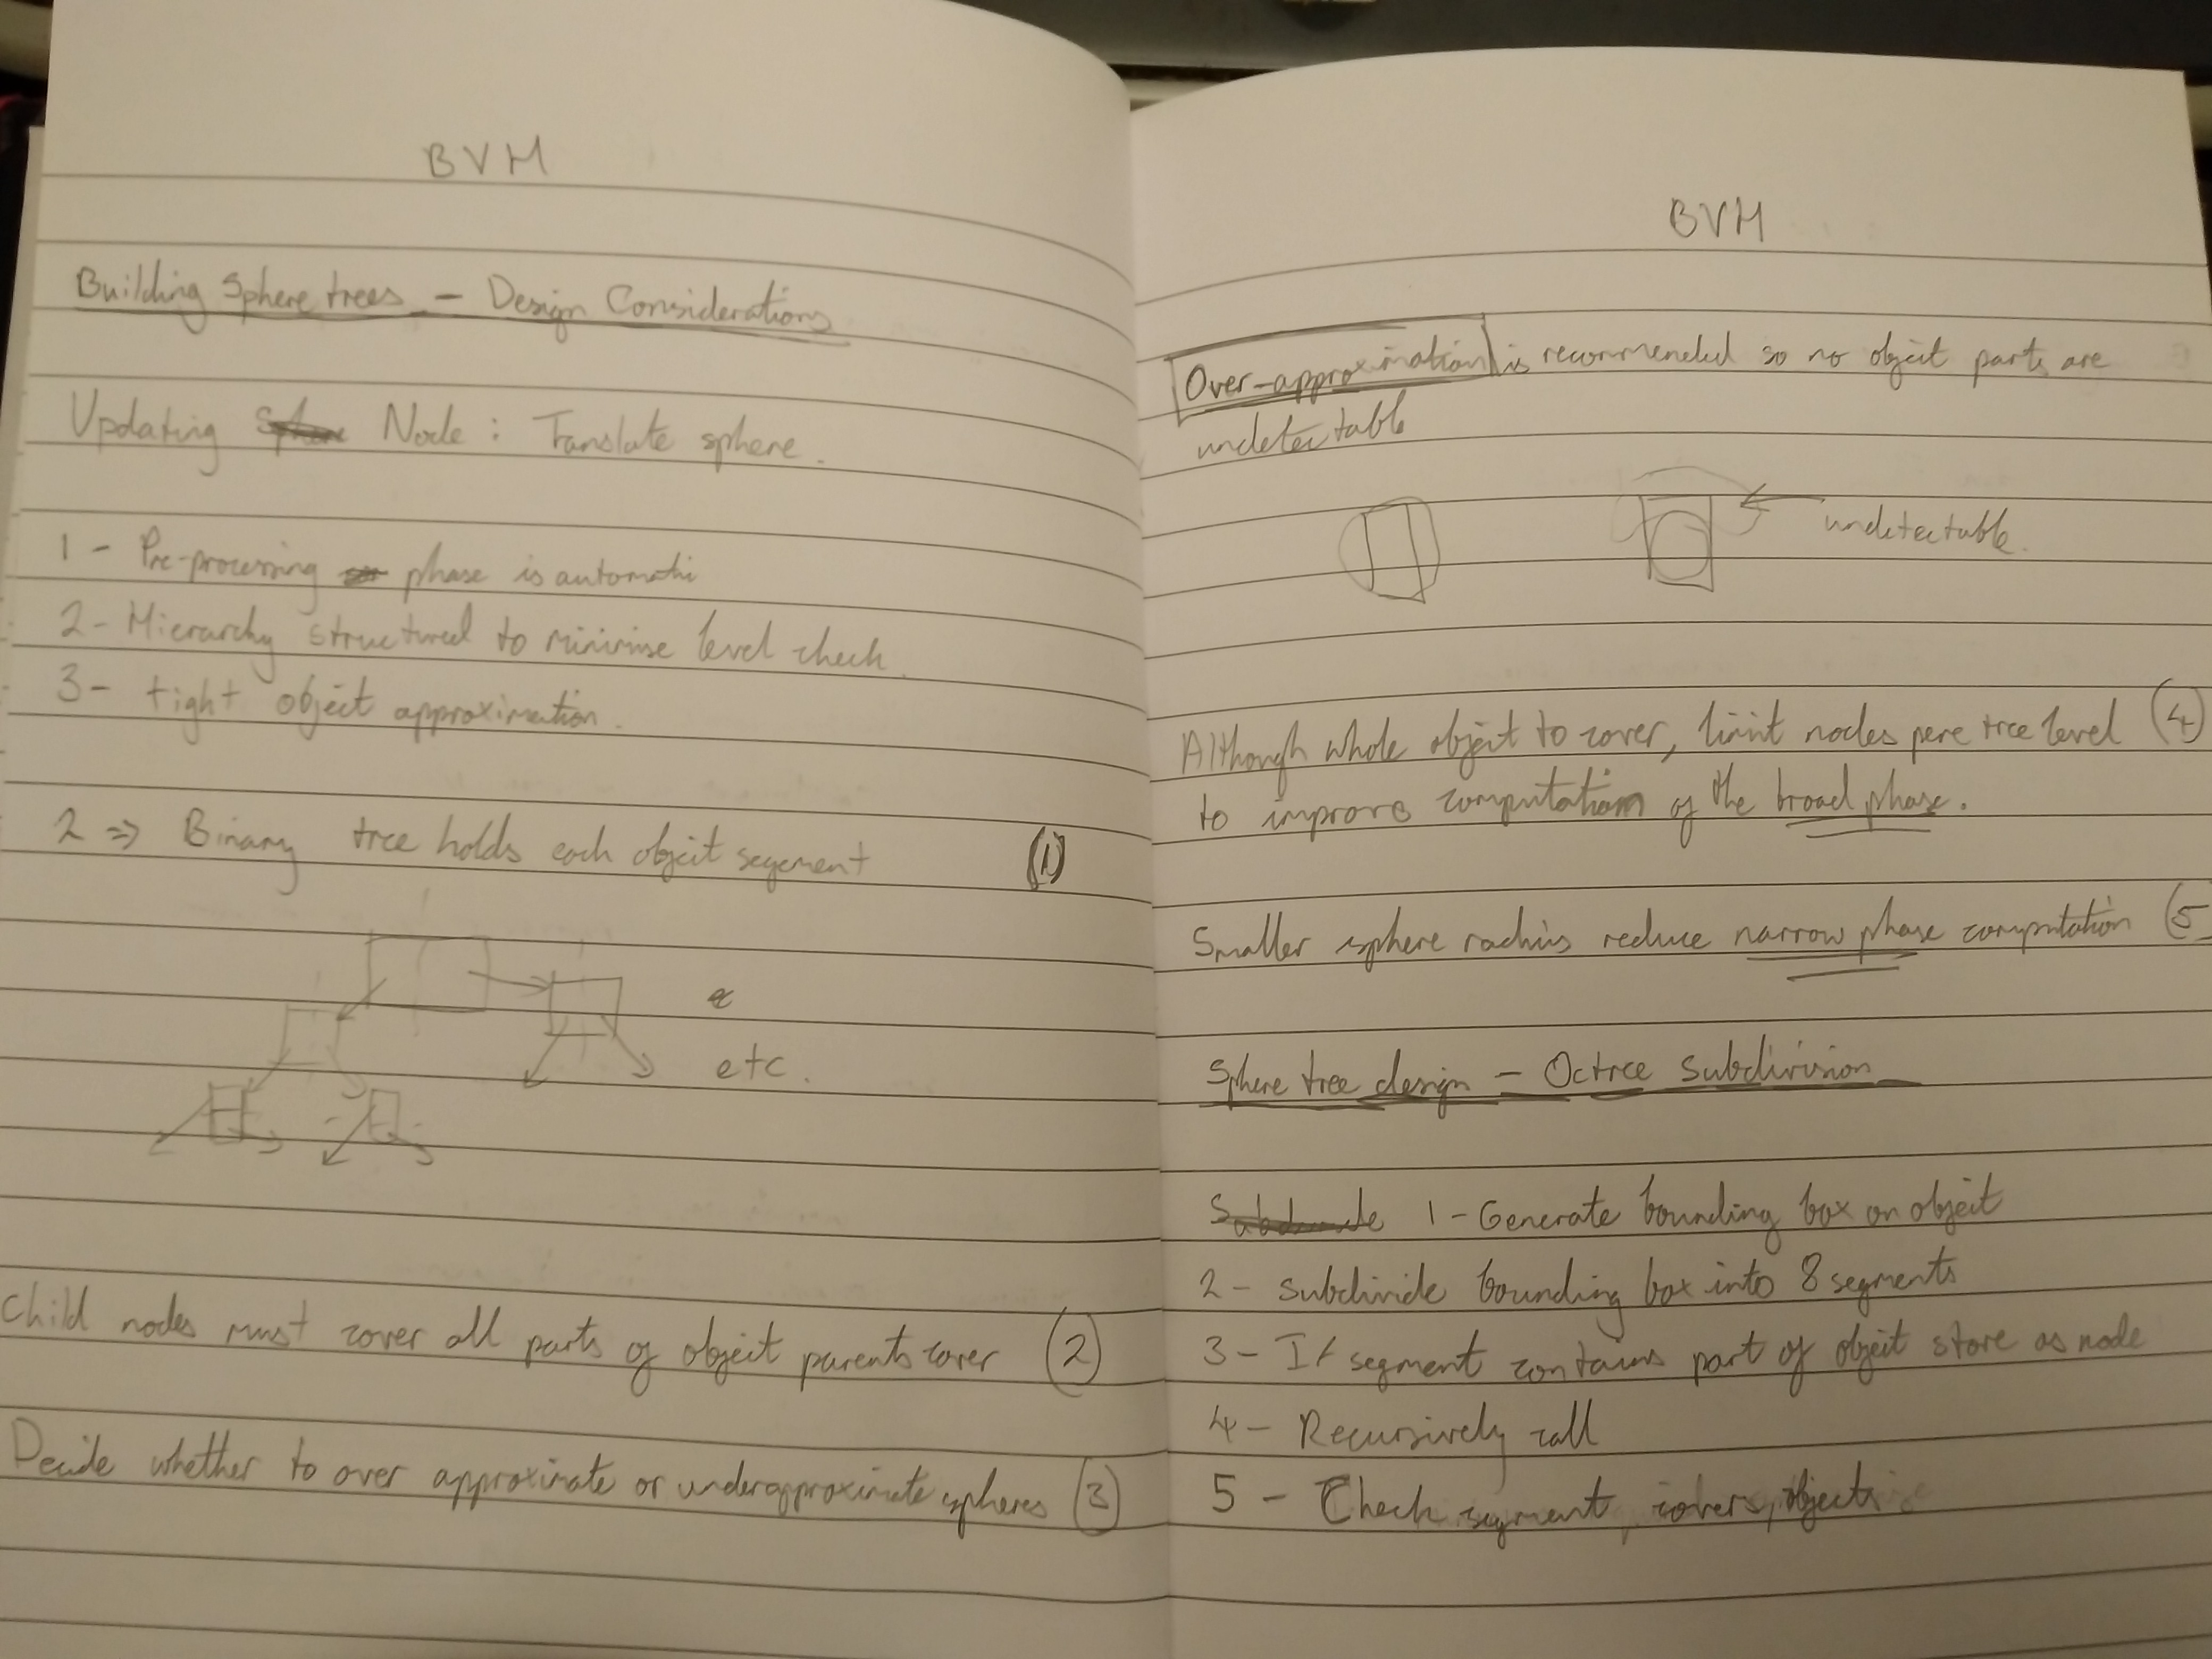 BVH
Building Sphere trees - Design Considerations
Updating Node : Translate sphere.
1 - Pre-processing phase is automatic
2 - Hierarchy structured to minimise level check.
3 - tight object approximation.
2 => Binary tree holds each object segement (1)
e
etc.
Child nodes must cover all parts of object parents cover (2)
Decide whether to over approximate or underapproximate spheres (3)
BVH
Over-approximation is recommended so no object parts are
undetectable
undetectable.
Although whole object to cover, limit nodes pere tree level (4)
to improve computation of the broad phase.
Smaller sphere radius reduce narrow phase computation (5
Sphere tree design - Octree subdivision
1 - Generate bounding box on object
2 - subdivide bounding box into 8 segments
3 - If segment contains part of object store as node
4 - Recursively call
5 - Check segment covers, object